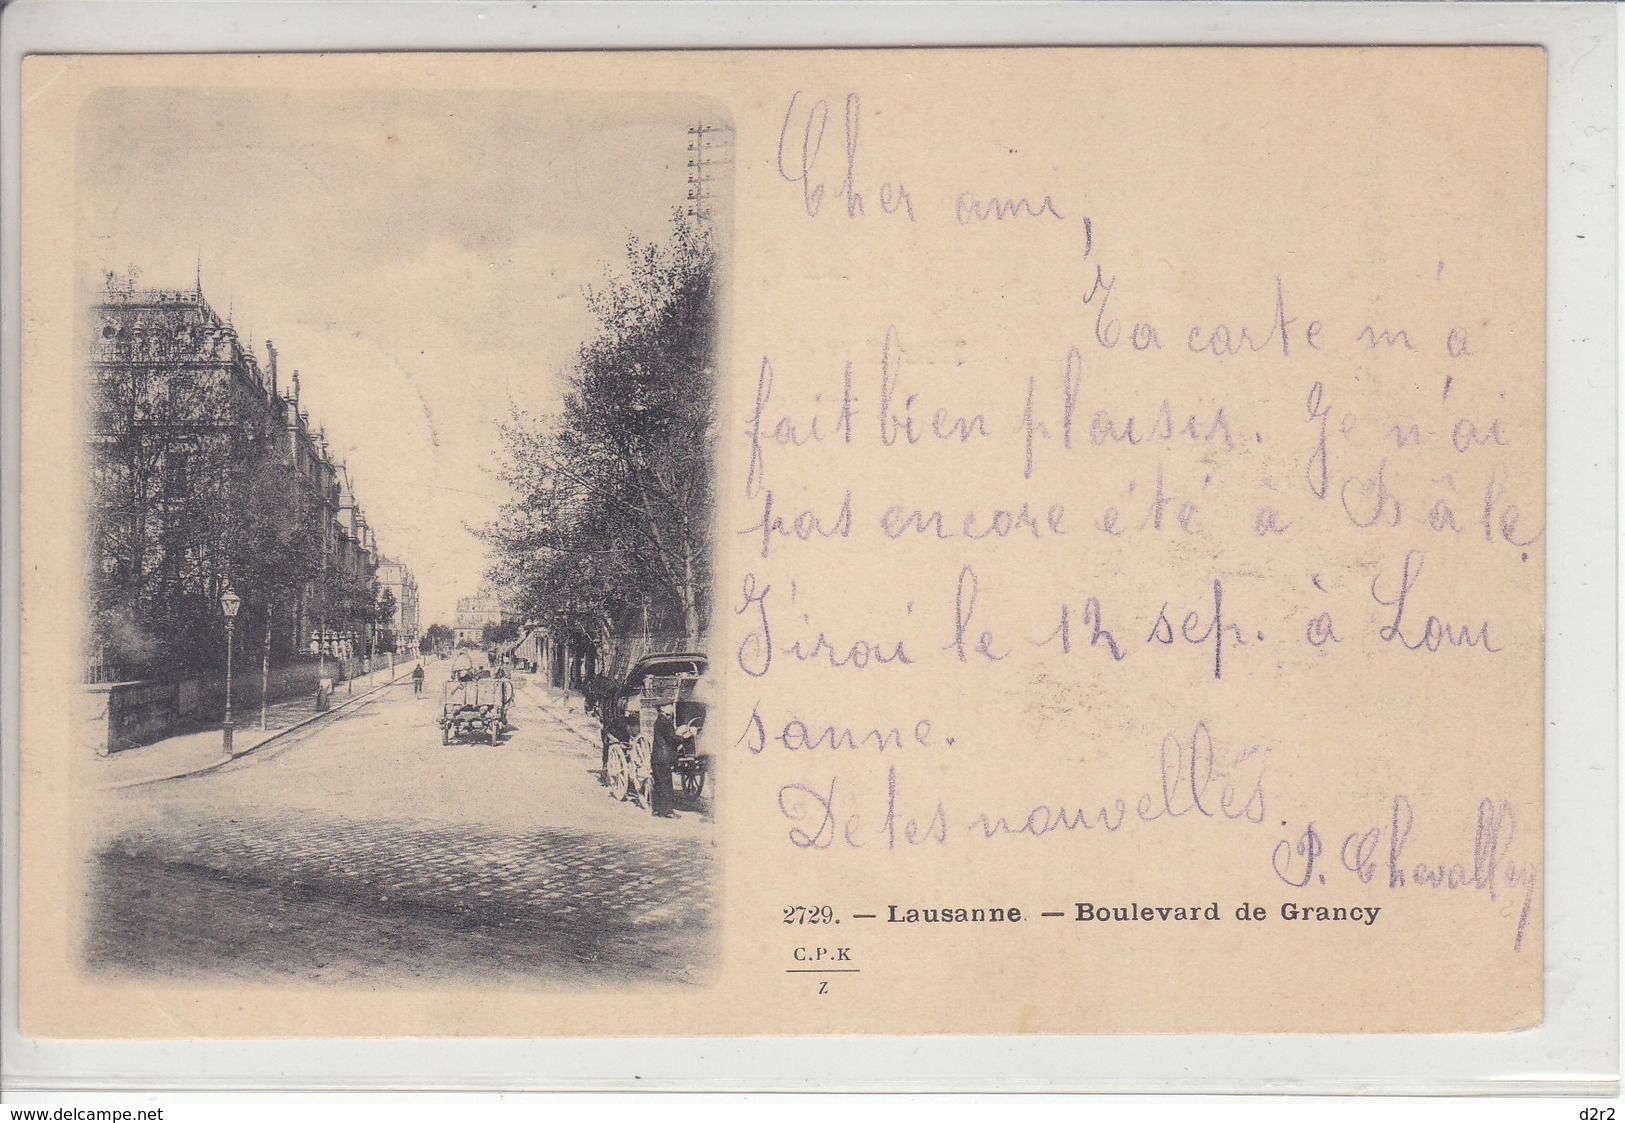 Cher ami,
Ta carte m'a
fait bien plaisir. Je n'ai
pas encore été à Bâle.
J'irai le 12 sep. à Lau
sanne.
De tes nouvelles.
P. Chevalley
2729. — Lausanne. — Boulevard de Grancy
C.P.K
Z
www.delcampe.net
d2r2